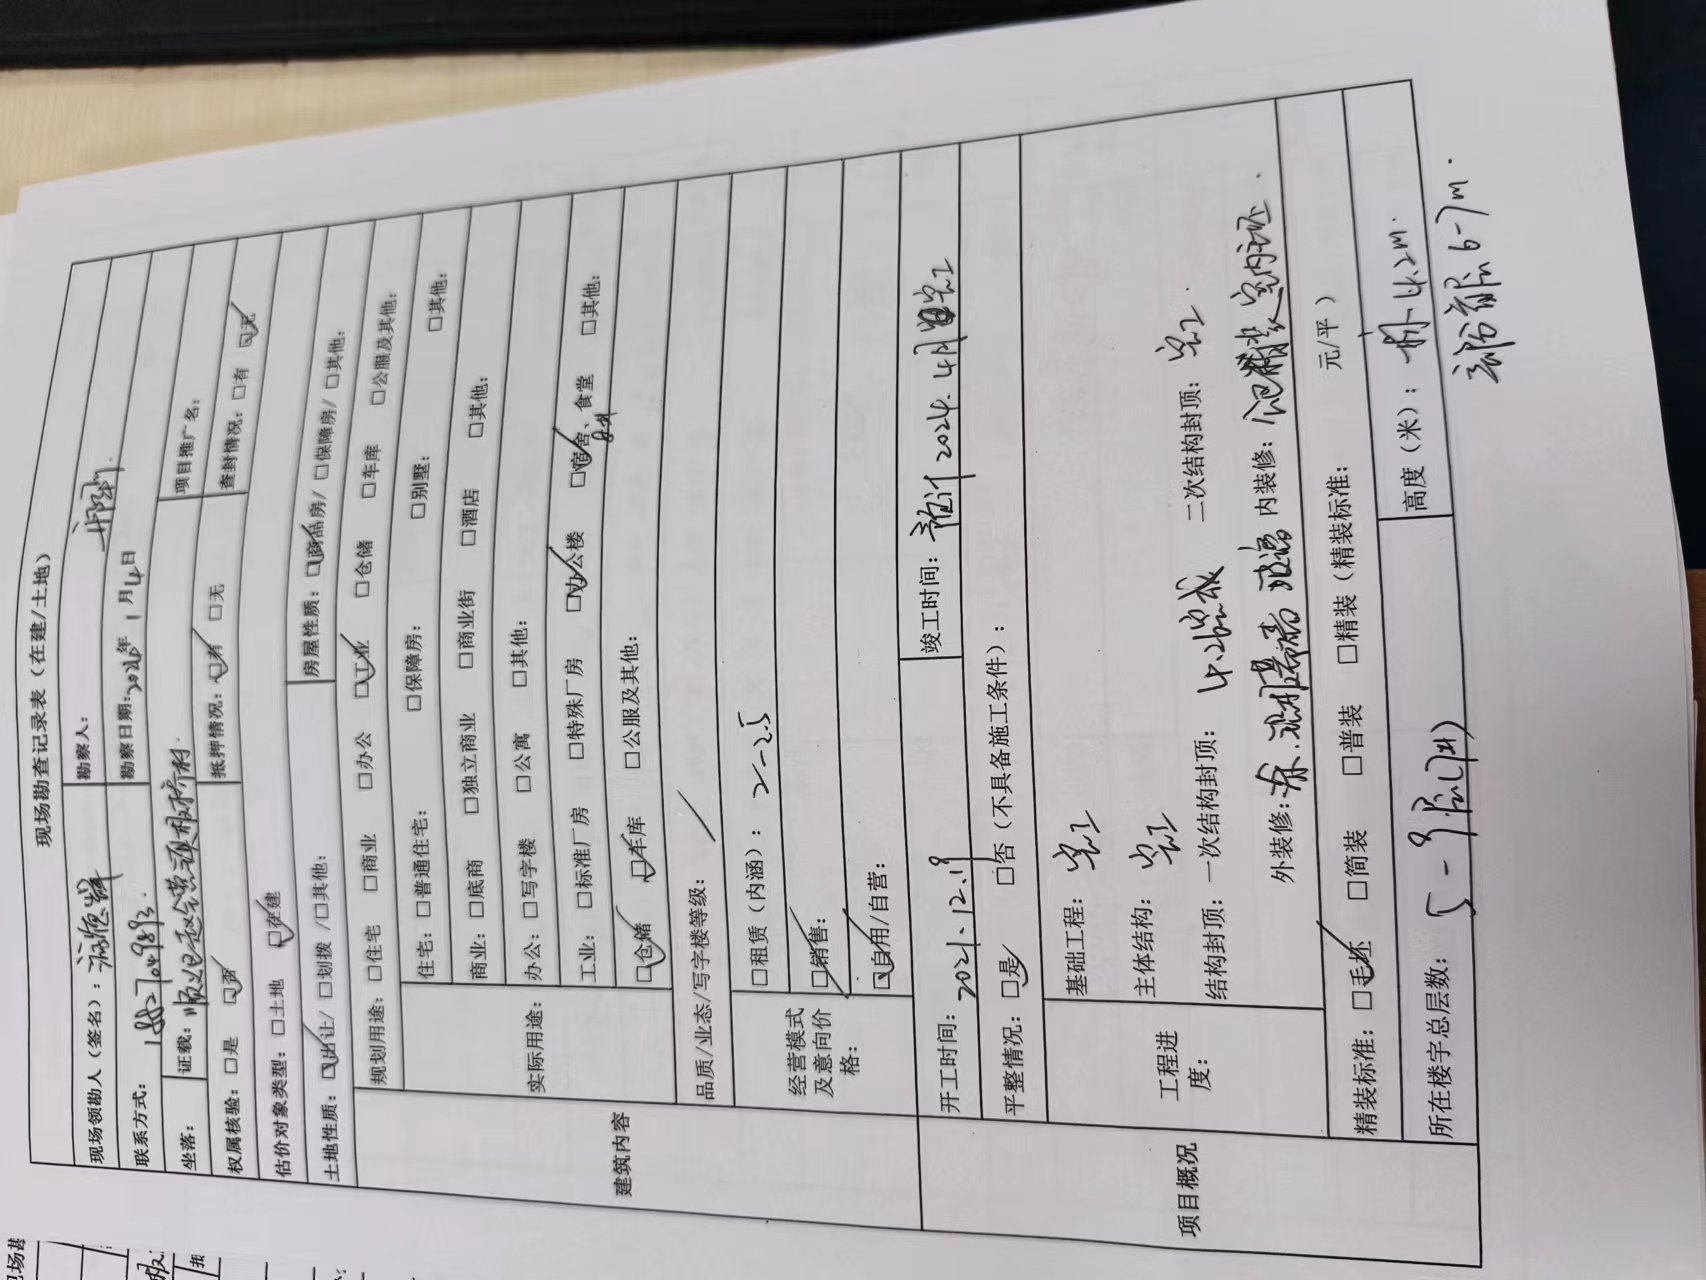 现场勘查记录表（在建/土地）
现场领勘人（签名）： 勘察人：
联系方式： 勘察日期：2024年1月4日
坐落： 证载：顺义区赵全营镇板桥村. 项目推广名：
权属核验： □是 ☑否 抵押情况： ☑有 □无 查封情况：□有 ☑无
估价对象类型：□土地 ☑在建
土地性质：☑出让/ □划拨 /□其他： 房屋性质：☑商品房/ □保障房/ □其他：
建筑内容
规划用途：□住宅 □商业 □办公 ☑工业 □仓储 □车库 □公服及其他：
实际用途：
住宅：□普通住宅： □保障房： □别墅： □其他：
商业：□底商 □独立商业 □商业街 □酒店 □其他：
办公：□写字楼 □公寓 □其他：
工业： □标准厂房 □特殊厂房 ☑办公楼 ☑宿舍、食堂 □其他：
☑仓储 ☑车库 □公服及其他：
品质/业态/写字楼等级： /
经营模式及意向价格：
□租赁（内涵）：2-2.5
☑销售：
☑自用/自营：
项目概况
开工时间：2021.12月 竣工时间：预计2024.4月完工
平整情况：☑是 □否（不具备施工条件）：
工程进度：
基础工程： 完工
主体结构： 完工
结构封顶：一次结构封顶： 二次结构封顶： 完工.
外装修： 内装修：
精装标准： ☑毛坯 □简装 □普装 □精装（精装标准： 元/平）
所在楼宇总层数： 5-9层 高度（米）： 4.2m.
部分首层6-7m.